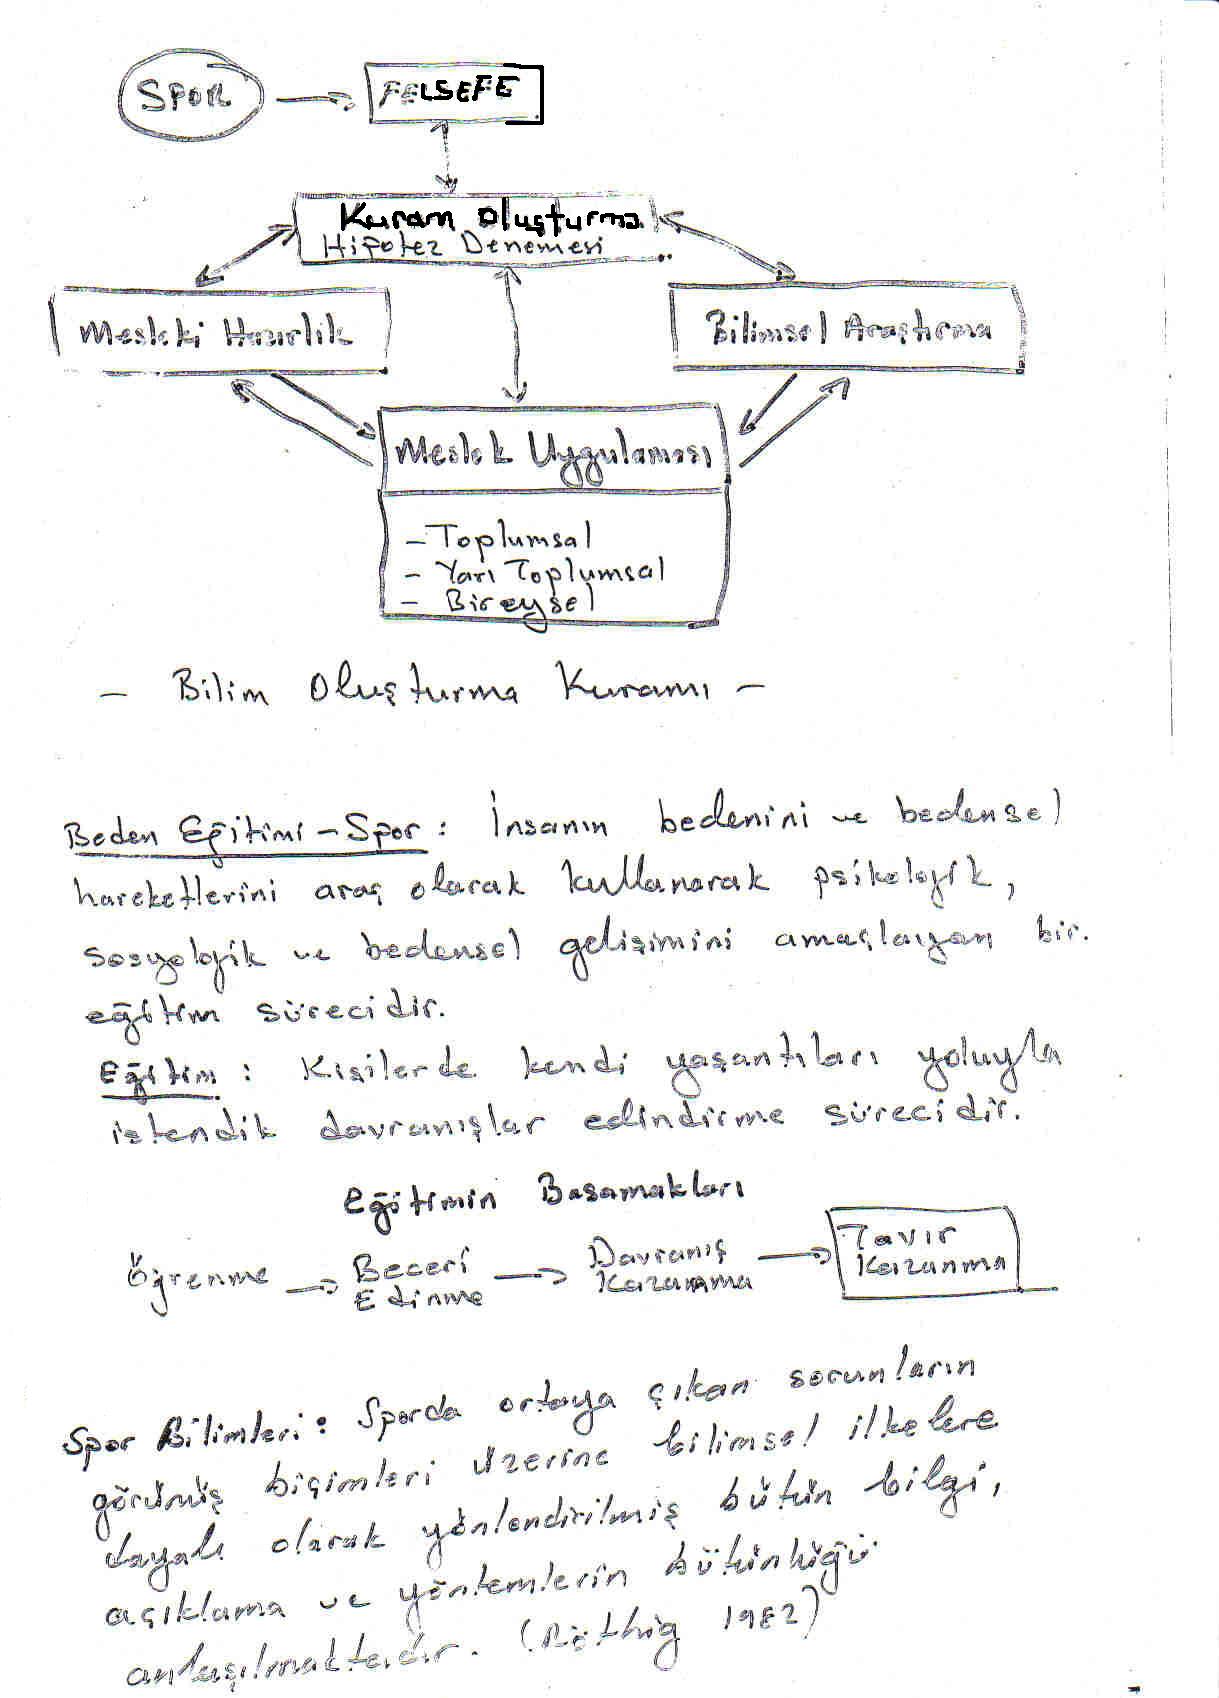 SPOR
FELSEFE
Kuram Oluşturma
Hipotez Denemesi
Mesleki Hazırlık
Bilimsel Araştırma
Meslek Uygulaması
- Toplumsal
- Yarı Toplumsal
- Bireysel
- Bilim Oluşturma Kuramı -
Beden Eğitimi - Spor : İnsanın bedenini ve bedensel
hareketlerini araç olarak kullanarak psikolojik,
sosyolojik ve bedensel gelişimini amaçlayan bir.
eğitim sürecidir.
Eğitim : Kişilerde kendi yaşantıları yoluyla
istendik davranışlar edindirme sürecidir.
Eğitimin Basamakları
Öğrenme
Beceri
Edinme
Davranış
Kazanma
Tavır
Kazanma
Spor Bilimleri : Sporda ortaya çıkan sorunların
görünüş biçimleri üzerine bilimsel ilkelere
dayalı olarak yönlendirilmiş bütün bilgi,
açıklama ve yöntemlerin bütünlüğü
anlaşılmaktadır. (Röthig 1982)